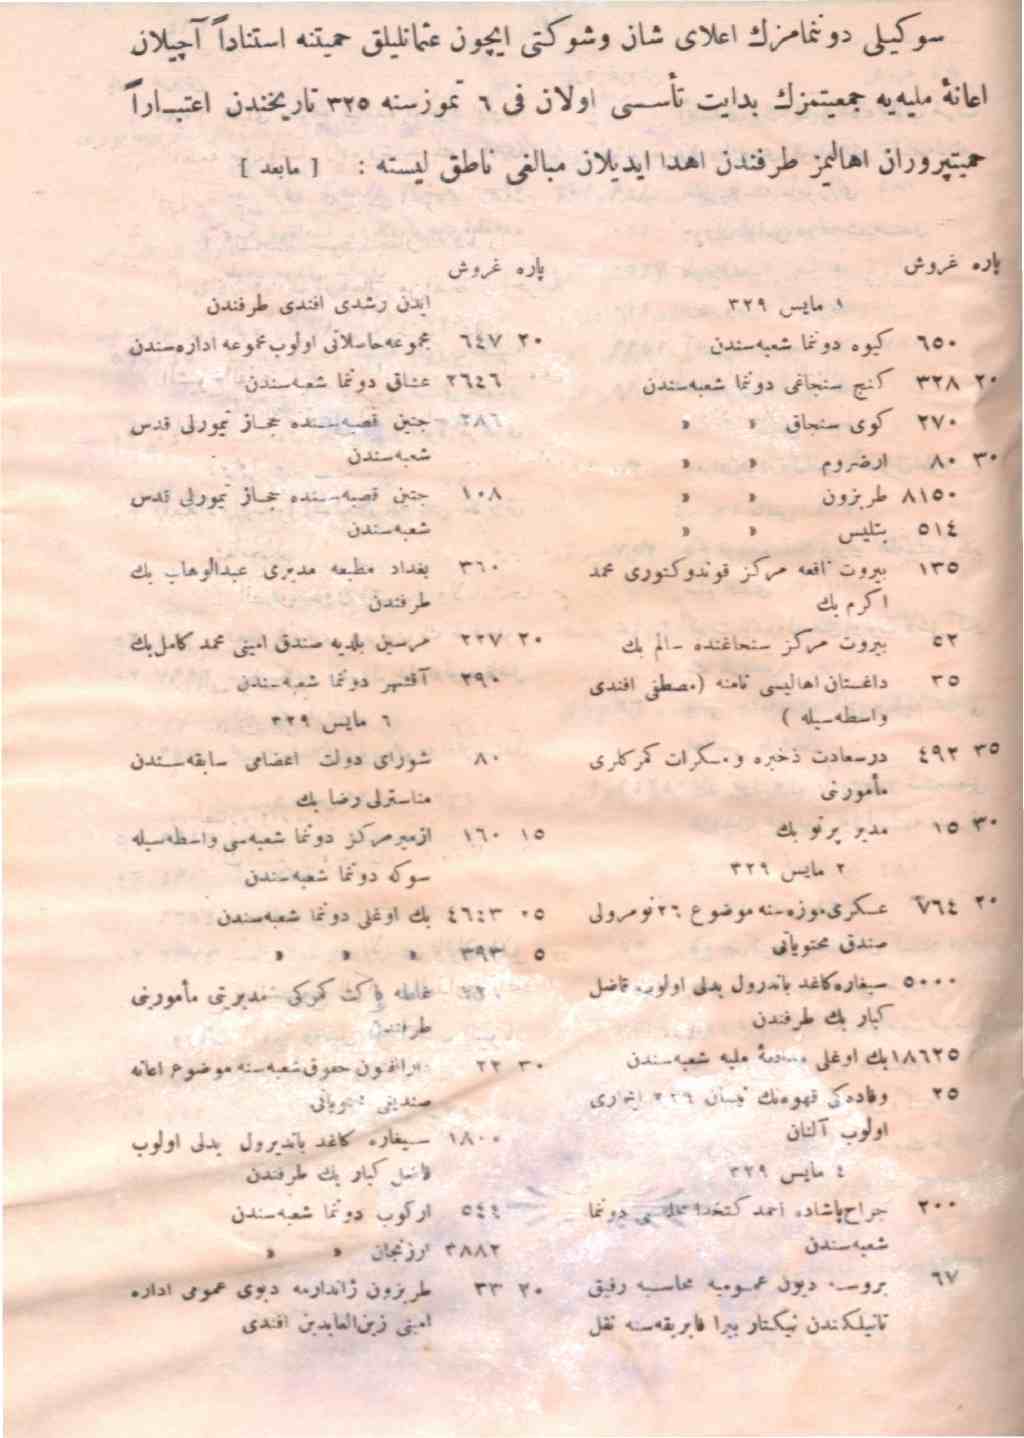 سوكيلى دوننمامزك اعلاى شان وشوكتى ايچون عثمانليلق حميتنه استناداً آچيلان
اعانۀ مليه‌يه جمعيتمزك بدايت تأسسى اولان فى ٦ تموز سنه ٣٢٥ تاريخندن اعتباراً
حميتپروران اهاليمز طرفندن اهدا ايديلان مبالغى ناطق ليسته : [ مابعد ]
پاره غروش
١ مايس ٣٢٩
٦٥٠ كيوه دوننما شعبه‌سندن
٢٠ ٣٢٨ كنج سنجاغى دوننما شعبه‌سندن
٢٧٠ كوى سنجاق » »
٣٠ ٨٠ ارضروم » »
٨١٥٠ طربزون » »
٥١٤ بتليس » »
١٣٥ بيروت نافعه مركز قوندوكتورى محمد
اكرم بك
٥٢ بيروت مركز سنجاغنده سالم بك
٣٥ داغستان اهاليسى نامنه (مصطفى افندى
واسطه‌سيله )
٣٥ ٤٩٢ درسعادت ذخيره ومسكرات كمركلرى
مأمورينى
٣٠ ١٥ مدير پرتو بك
٢ مايس ٣٢٩
٢٠ ٧٦٤ عسكرى موزه‌سنه موضوع ٢٦ نومرولى
صندق محتوياتى
٥٠٠٠ سيغاره كاغد باندرول بدلى اولوب فاضل
كبار بك طرفندن
١٨٦٢٥ بك اوغلى مليه شعبه‌سندن
٢٥ وفاده‌كى قهوه‌نك نيسان ٣٢٩ ايجارى
اولوب آلنان
٤ مايس ٣٢٩
٢٠٠ جراح‌پاشاده احمد كتخدا دوننما
شعبه‌سندن
٦٧ بروسه ديون عموميه محاسبه رفيق
تانيلكندن نيكتار بيرا فابريقه‌سنه نقل
پاره غروش
ايدن رشدى افندى طرفندن
٢٠ ٦٤٧ مجموعه حاصلاتى اولوب مجموعه اداره‌سندن
٢٦٤٦ عشاق دوننما شعبه‌سندن
٢٨٦ جنين قصبه‌سنده حجاز تيمورلى قدس
شعبه‌سندن
١٠٨ جنين قصبه‌سنده حجاز تيمورلى قدس
شعبه‌سندن
٣٦٠ بغداد مطبعه مديرى عبدالوهاب بك
طرفندن
٢٠ ٢٢٧ مرسين بلديه صندق امينى محمد كامل بك
٢٩٠ آقشهر دوننما شعبه‌سندن
٦ مايس ٣٢٩
٨٠ شوراى دولت اعضاى سابقه‌سندن
مناسترلى رضا بك
١٥ ١٦٠ ازمير مركز دوننما شعبه‌سى واسطه‌سيله
سوكه دوننما شعبه‌سندن
٠٥ ٤٦٤٣ بك اوغلى دوننما شعبه‌سندن
٥ ٣٩٣ » » »
غلطه پاكت كمركى مديريتى مأمورينى
طرفندن
٣٠ ٢٢ دارالفنون حقوق شعبه‌سنه موضوع اعانه
صنديغى محتوياتى
١٨٠٠ سيغاره كاغد بانديرول بدلى اولوب
فاضل كبار بك طرفندن
٥٤٤ اركوب دوننما شعبه‌سندن
٣٨٨٢ ارزنجان » »
٢٠ ٣٣ طربزون ژاندارمه دپوى عمومى اداره
امينى زين‌العابدين افندى